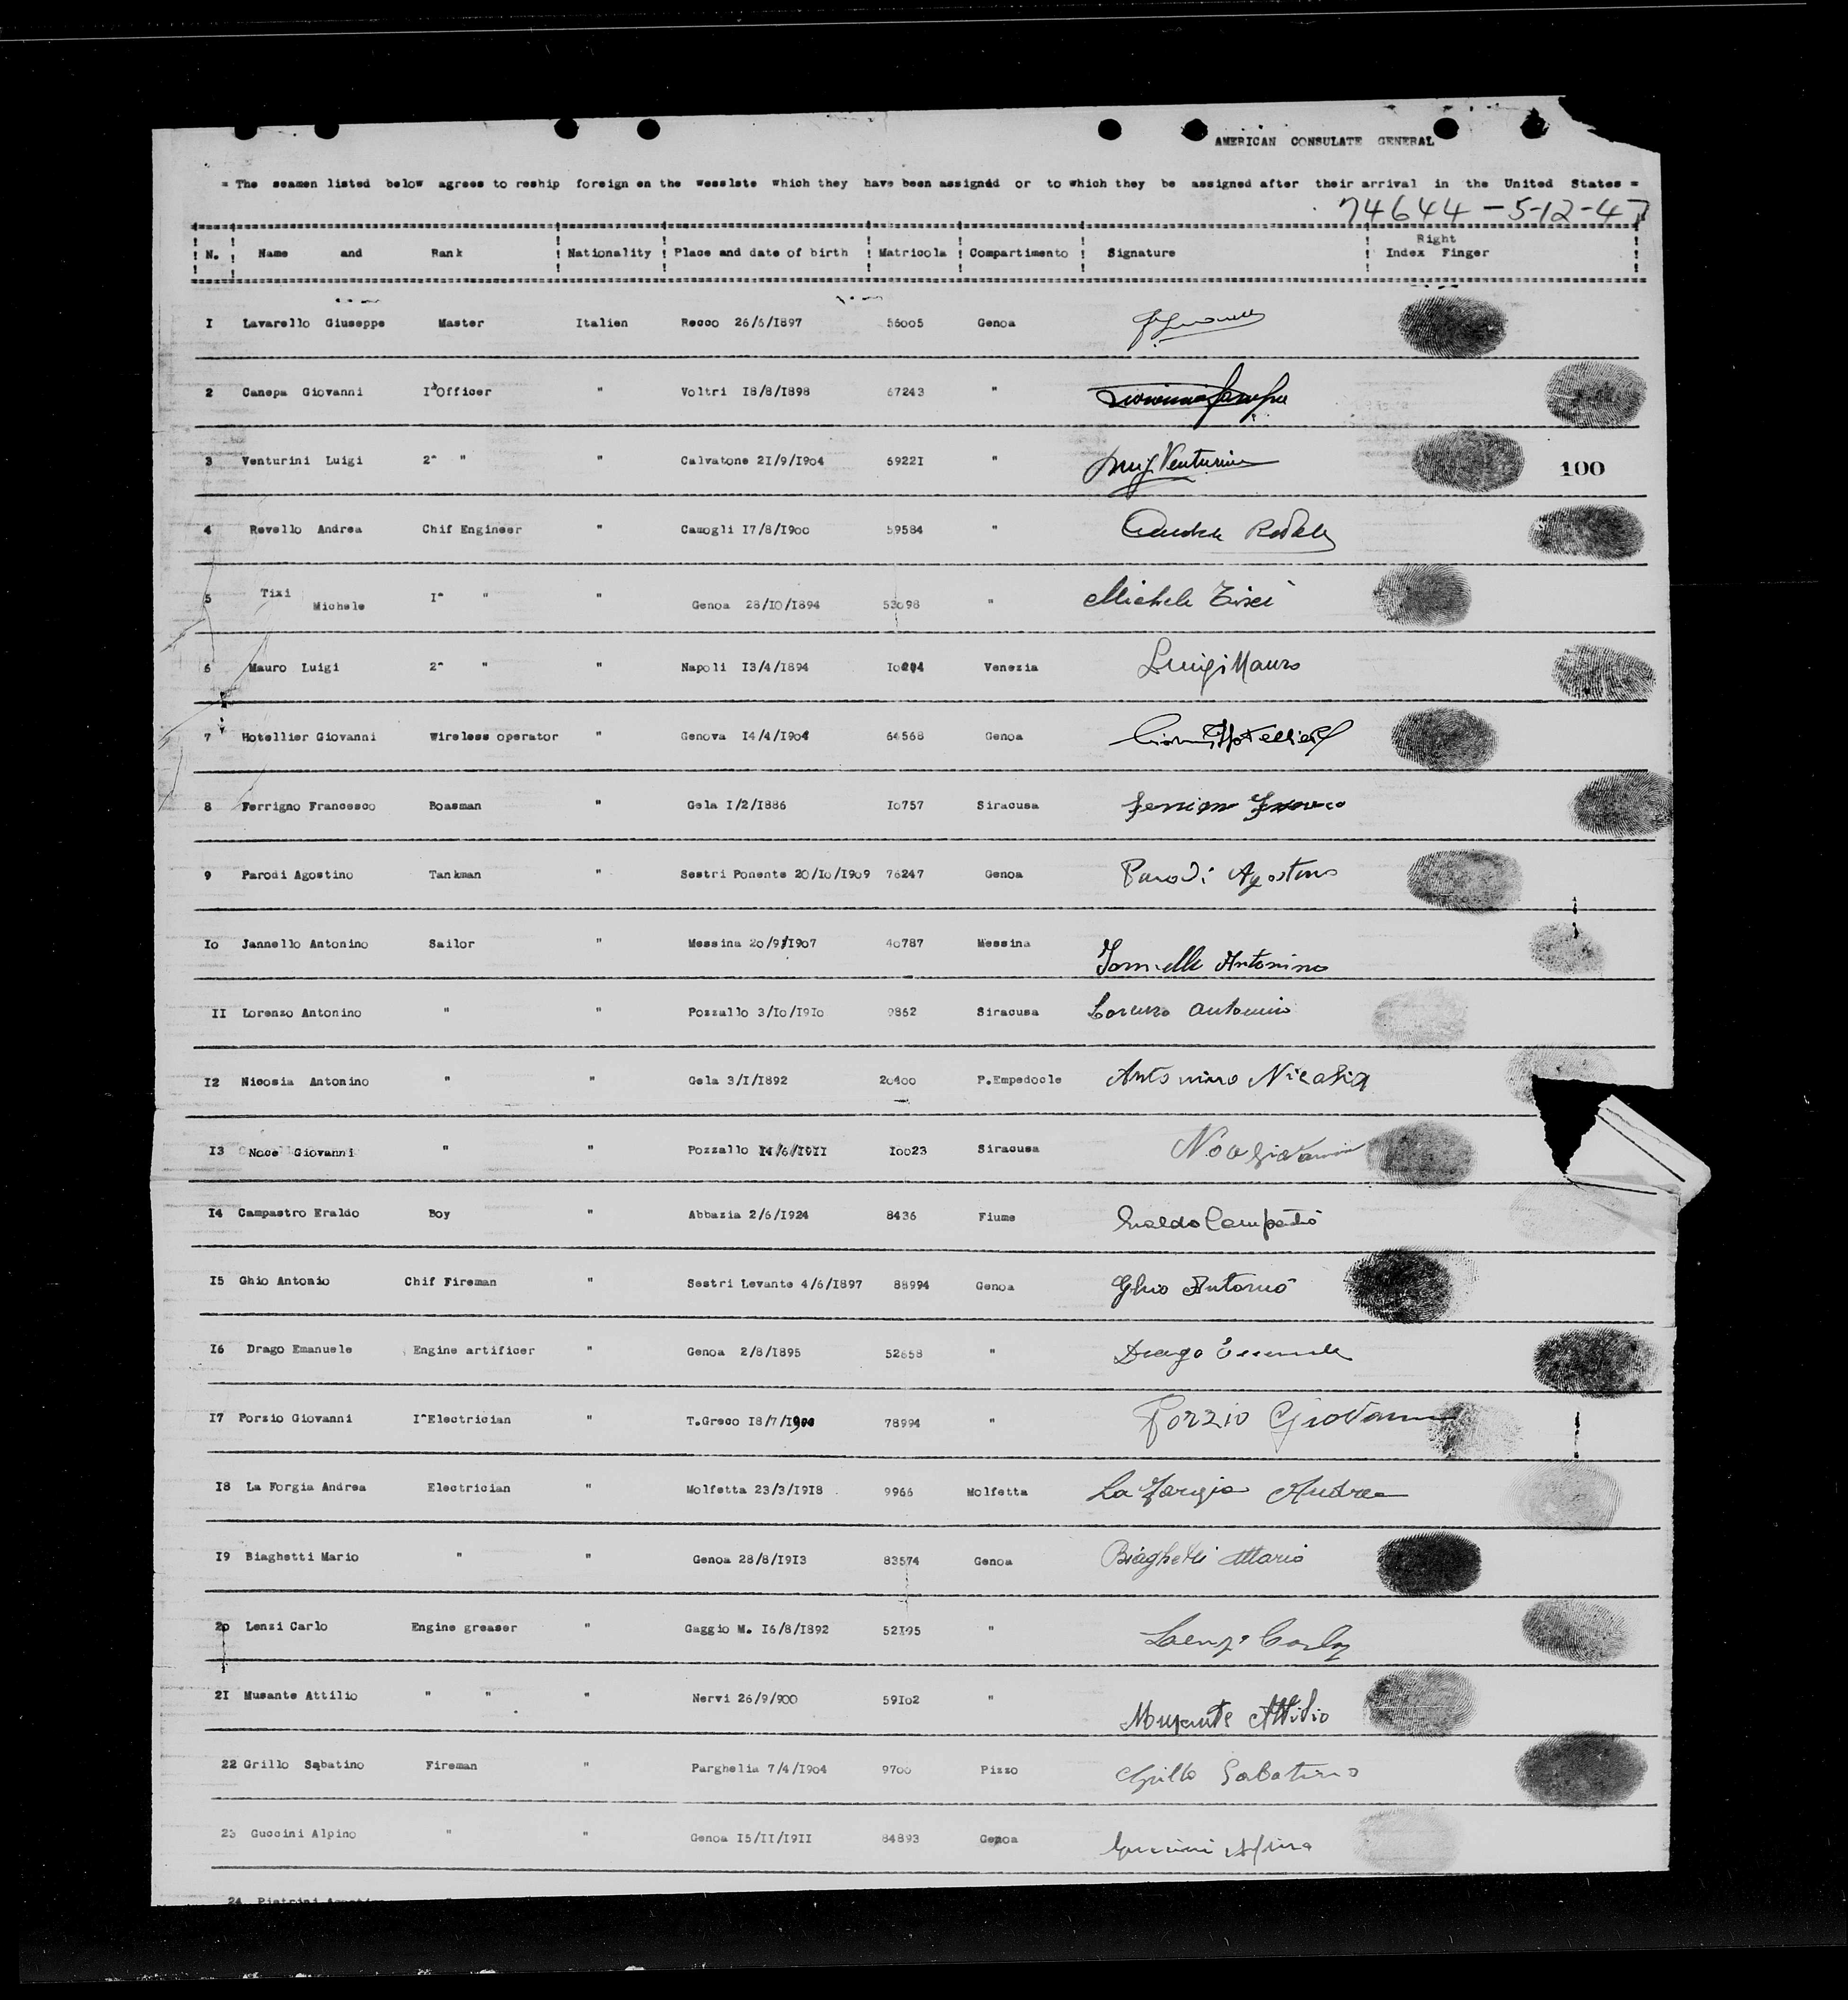 AMERICAN CONSULATE GENERAL
= The seamen listed below agrees to reship foreign on the wesslste which they have been assigned or to which they be assigned after their arrival in the United States =
74644 - 5-12-47
N. Name and Rank Nationality Place and date of birth Matricola Compartimento Signature Right Index Finger
I Lavarello Giuseppe Master Italien Recco 26/6/I897 56005 Genoa
2 Canepa Giovanni I^Officer " Voltri I8/8/I898 67243 "
3 Venturini Luigi 2^ " " Calvatone 2I/9/I9o4 6922I " Luigi Venturini
100
4 Revello Andrea Chif Engineer " Camogli I7/8/I9oo 59584 " Andrea
5 Tixi Michele I^ " " Genoa 28/IO/I894 53o98 " Michele Tixi
6 Mauro Luigi 2^ " " Napoli I3/4/I894 Venezia Luigi Mauro
7 Hotellier Giovanni Wireless operator " Genova I4/4/I9o4 64568 Genoa Giovanni Hotellier
8 Ferrigno Francesco Boasman " Gela I/2/I886 Io757 Siracusa
9 Parodi Agostino Tankman " Sestri Ponente 20/Io/I9o9 76247 Genoa Parodi Agostino
Io Jannello Antonino Sailor " Messina 2o/9/I9o7 4o787 Messina Jannello Antonino
II Lorenzo Antonino " " Pozzallo 3/Io/I9Io 9862 Siracusa Lorenzo Antonino
I2 Nicosia Antonino " " Gela 3/I/I892 2o4oo P.Empedocle Antonino Nicosia
I3 Noce Giovanni " " Pozzallo I4/6/I9II Ioo23 Siracusa Noce Giovanni
I4 Campastro Eraldo Boy " Abbazia 2/6/I924 8436 Fiume Eraldo Campastro
I5 Ghio Antonio Chif Fireman " Sestri Levante 4/6/I897 88994 Genoa Ghio Antonio
I6 Drago Emanuele Engine artificer " Genoa 2/8/I895 52658 " Drago Emanuele
I7 Porzio Giovanni I^Electrician " T.Greco I8/7/I900 78994 " Porzio Giovanni
I8 La Forgia Andrea Electrician " Molfetta 23/3/I9I8 9966 Molfetta La Forgia Andrea
I9 Biaghetti Mario " " Genoa 28/8/I9I3 83574 Genoa Biaghetti Mario
2o Lenzi Carlo Engine greaser " Gaggio M. I6/8/I892 52I95 " Lenzi Carlo
2I Musante Attilio " " " Nervi 26/9/900 59Io2 " Musante Attilio
22 Grillo Sabatino Fireman " Parghelia 7/4/I9o4 97oo Pizzo Grillo Sabatino
23 Guccini Alpino " " Genoa I5/II/I9II 84893 Genoa Guccini Alpino
24 Pietrini